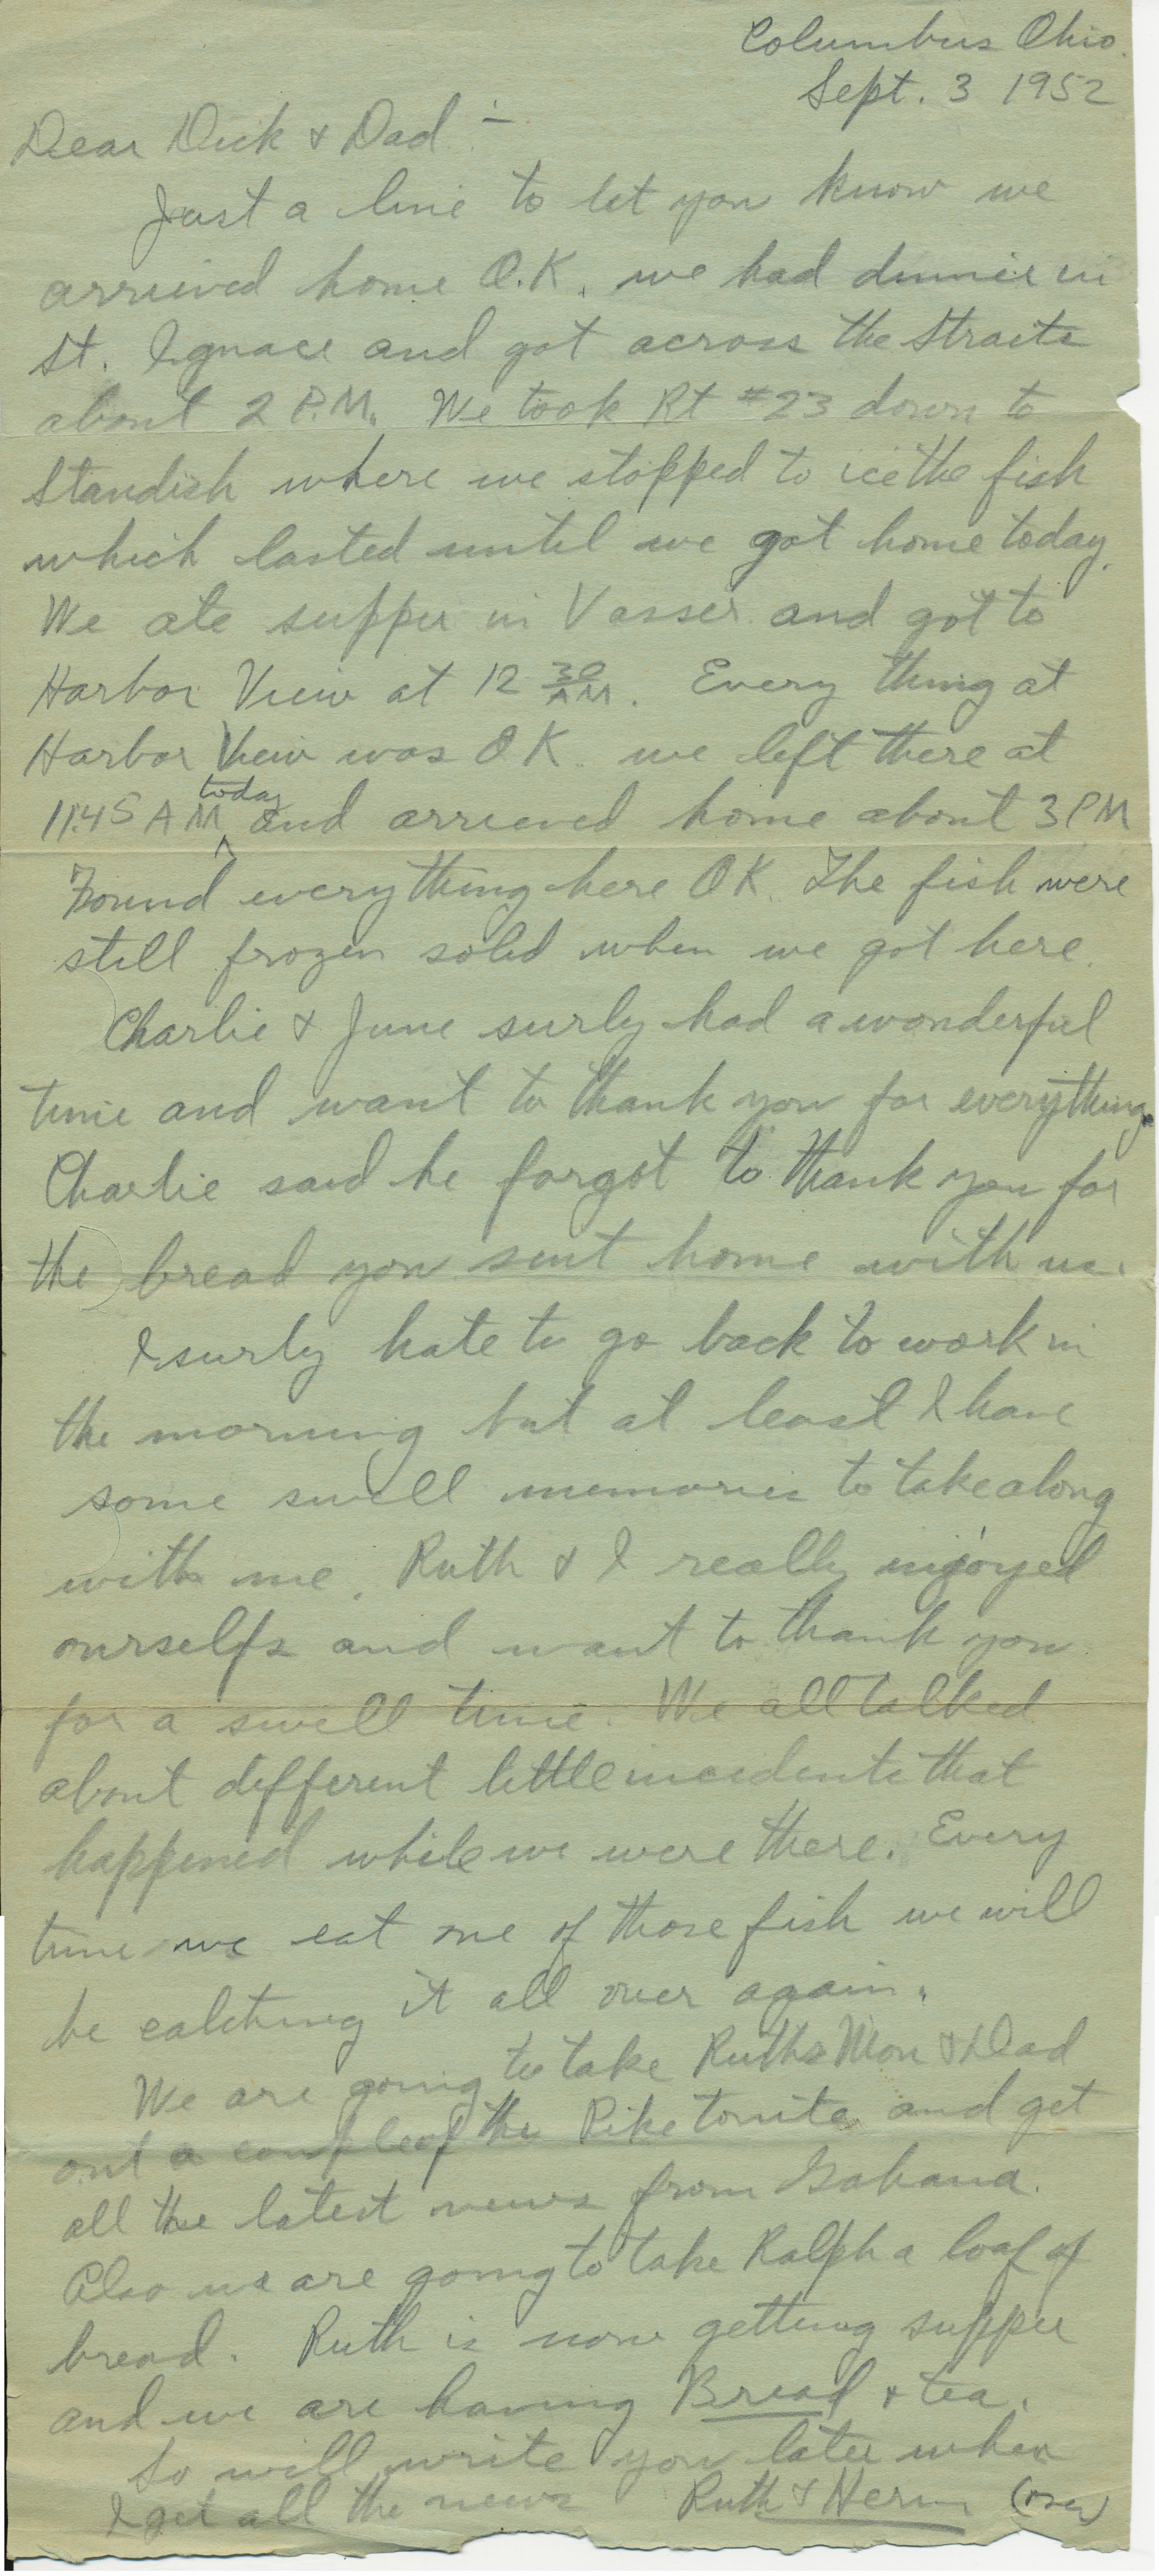 Columbus Ohio.
Sept. 3 1952
Dear Dick & Dad :-
Just a line to let you know we
arrieved home O.K. we had dinner in
St. Ignace and got across the Straits
about 2 P.M. We took Rt #23 down to
Standish where we stopped to ice the fish
which lasted until we got home today.
We ate supper in Vasser and got to
Harbor View at 12 30 AM. Every thing at
Harbor View was O K. we left there at
11:45 A M today and arrieved home about 3 PM
Found everything here OK. The fish were
still frozen solid when we got here.
Charlie & June surly had a wonderful
time and want to thank you for everything.
Charlie said he forgot to thank you for
the bread you sent home with us.
I surly hate to go back to work in
the morning but at least I have
some swell memories to take along
with me. Ruth & I really injoyed
ourselfs and want to thank you
for a swell time. We all talked
about different little incidents that
happened while we were there. Every
time we eat one of those fish we will
be catching it all over again.
We are going to take Ruths Mom & Dad
out a couple of the Pike tonite and get
all the latest news from Gahana.
Also we are going to take Ralph a loaf of
bread. Ruth is now getting supper
and we are having Bread & tea.
So will write you later when
I get all the news Ruth & Herm (over)